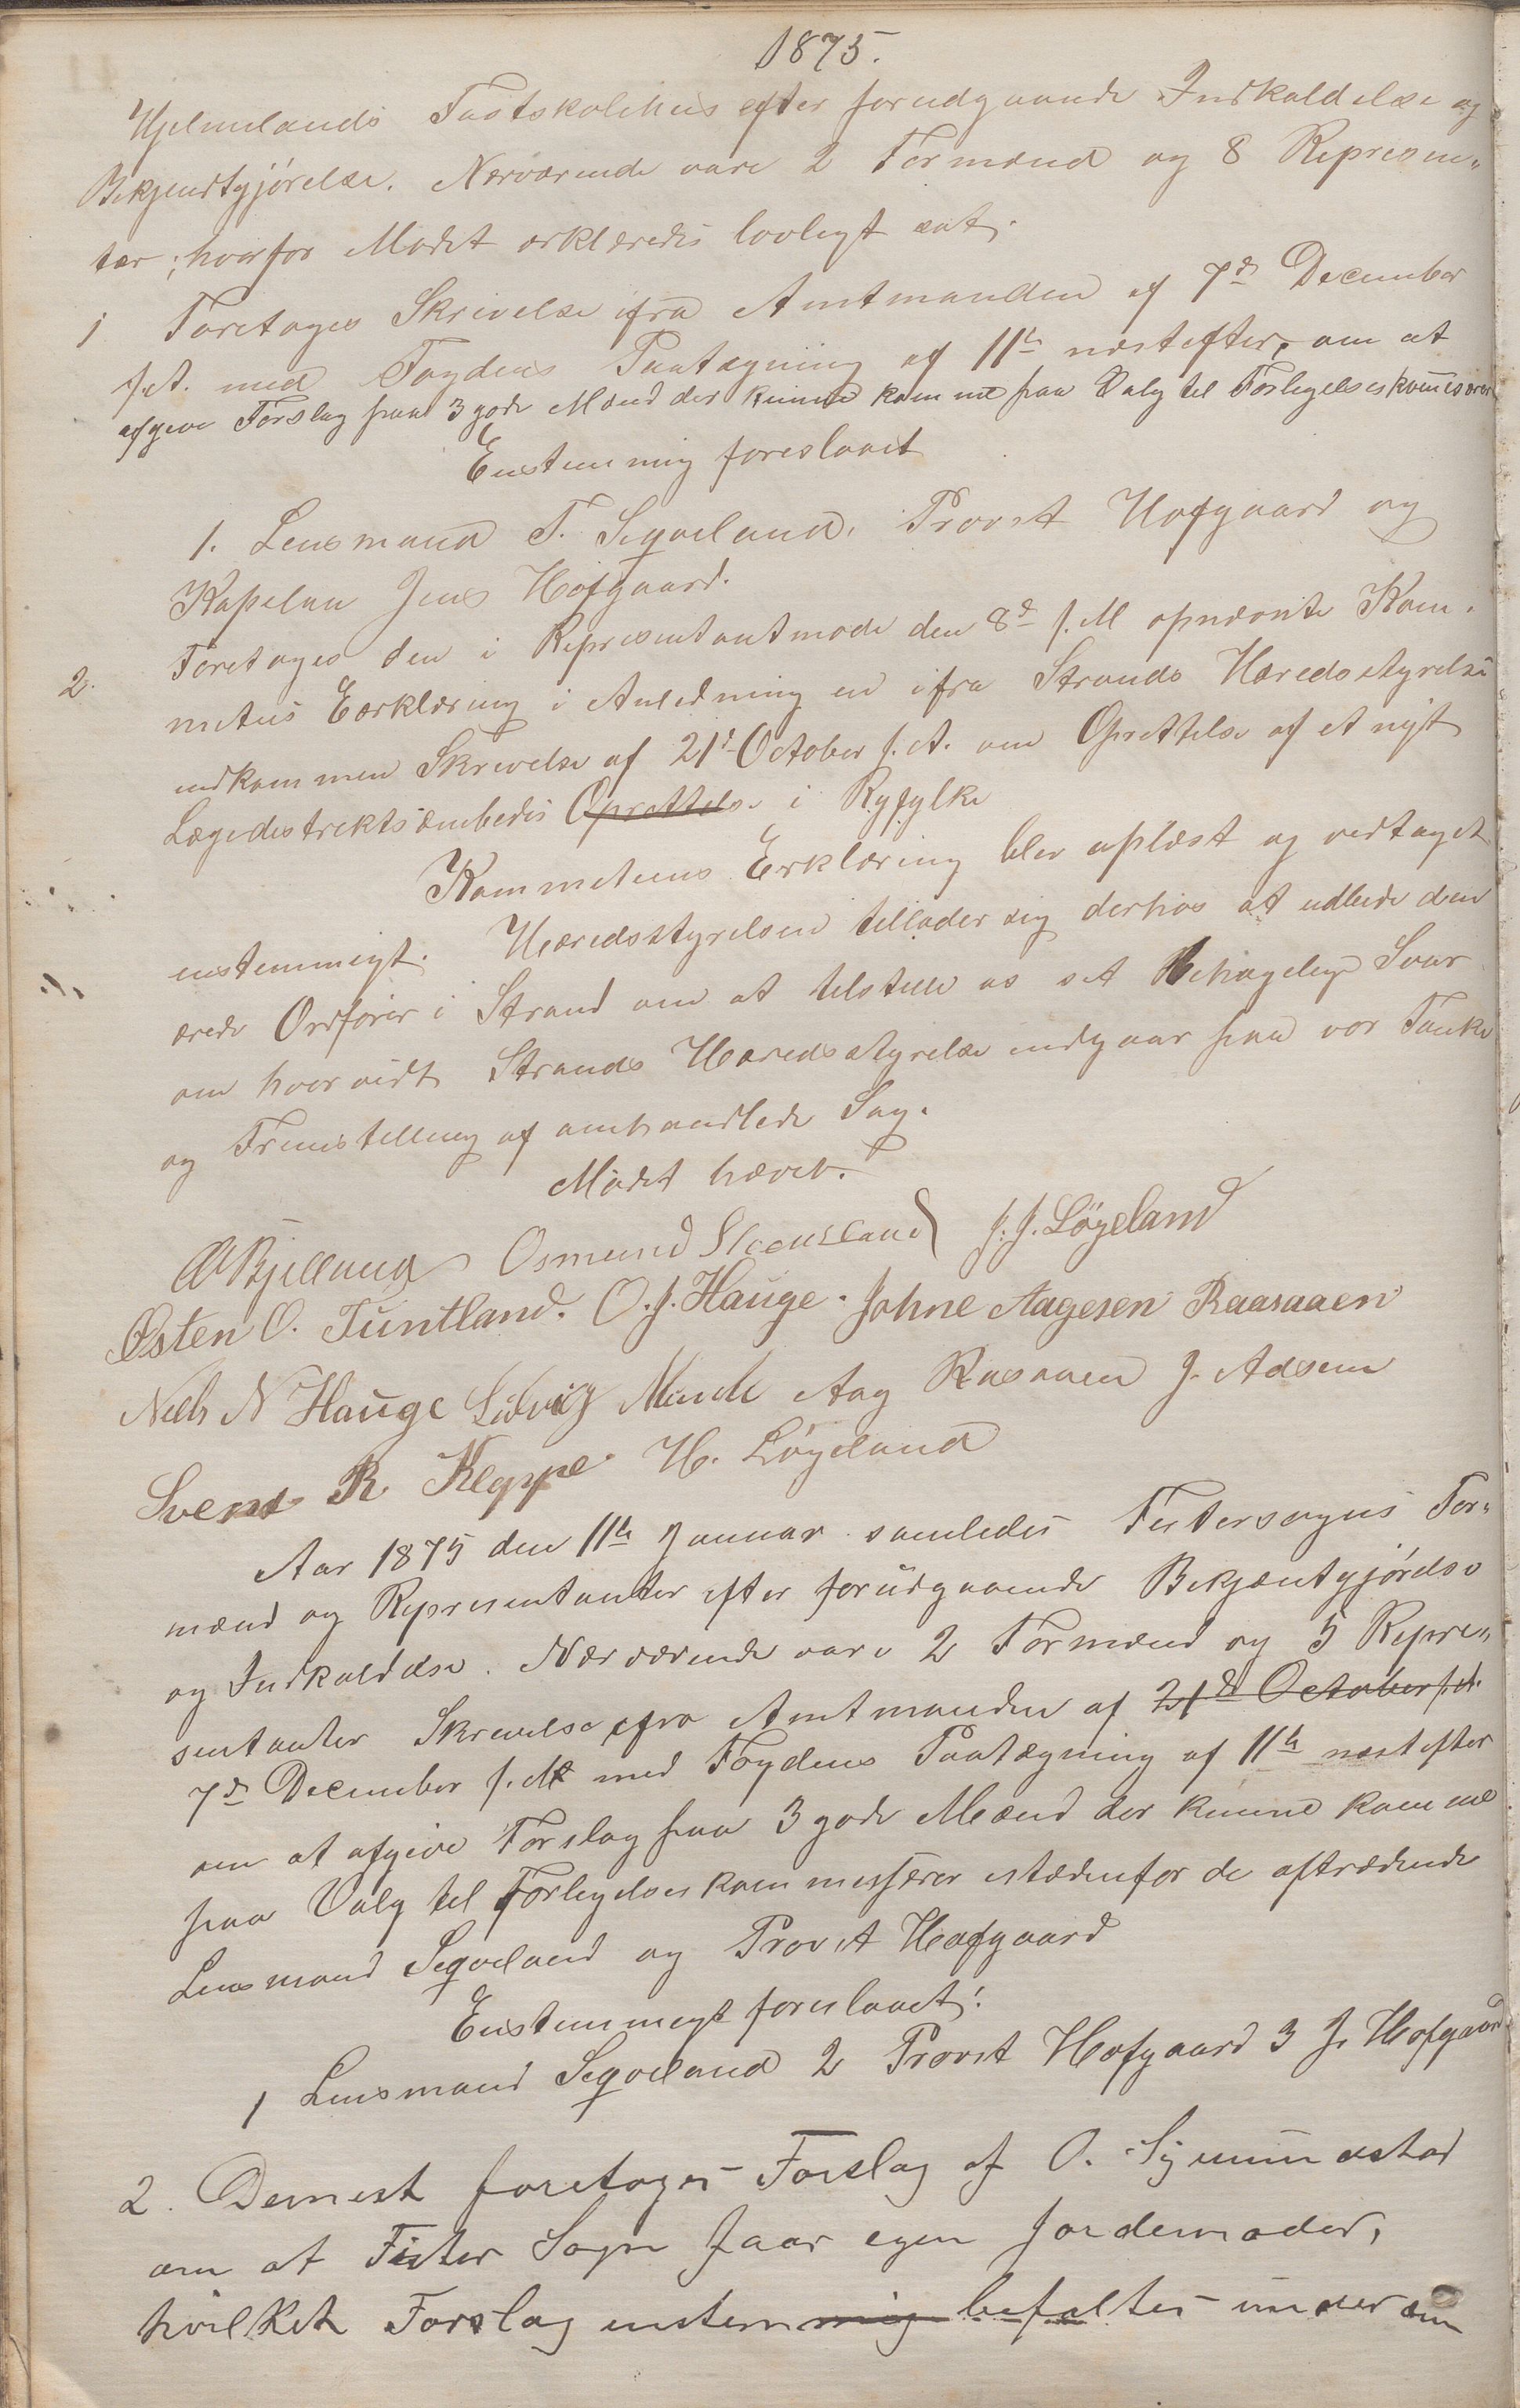 1875.
Hjelmelands Fastskolehus efter forudgaaende Indkaldelse og
Bekjendtgjørelse. Nærværende vare 2 Formænd og 8 Represen„
ter; hvorfor Mødet erklæredes lovligt sat.
1 Foretages Skrivelse ifra Amtmanden af 7d December
f.A. med Fogdens Paategning af 11te næstefter, om at
afgive Forslag paa 3 gode Mænd der kunne komme paa Valg til Forligelseskomisærer
Enstemmig foreslaaet
1. Lensmand T. Seqveland, Provst Hofgaard og
Kapelan Jens Hofgaard.
2. Foretages den i Representantmøde den 8d f.M opnævnte Kom.
metees Eerklæring i Anledning en ifra Strands Herredsstyrelse
indkommen Skrivelse af 21d October f.A. om Oprettelse af et nyt
Lægedistriktsæmbedes Oprettelse i Ryfylke
Kommeteens Erklæring blev oplæst og vedtaget
enstemmigt. Herredsstyrelsen tillader sig derhos at udbede den
ærede Ordfører i Strand om at tilstille os sit Behagelige Svar
om hvorvidt Strands Herredsstyrelse indgaar paa vor Tanke
og Fremstilling af omhandlede Sag.
Mødet hævet.
Osmund Steensland J. J. Løgeland
Østen O. Tuntland. O. J. Hauge. Johne Aagesen Raasaaen
Niels N Hauge Ludvig Munk Aag Rasaaen J. Adsem
Svend R Kleppe H. Løgeland
Aar 1875 den 11te Januar samledes Fistersogns For„
mænd og Representanter efter forudgaaende Bekjæntgjørelse
og Indkaldelse. Nærværende vare 2 Formænd og 5 Repre„
sentanter Skrivelse ifra Amtmanden af 21d October f.A.
7d December f.A med Fogdens Paategning af 11te næstefter
om at afgive Forslag paa 3 gode Mænd der kunne komme
paa Valg til Forligelseskommissærer istædenfor de aftrædende
Lensmand Seqveland og Provst Hofgaard
Enstemmigt foreslaaet:
1 Lensmand Seqveland 2 Provst Hofgaard 3 J. Hofgaard
2. Dernest foretoges Forslag af O. Sigmundstad
om at Fister Sogn faar egen Jordemoder,
hvilket Forslag enstemmig befaltes under en